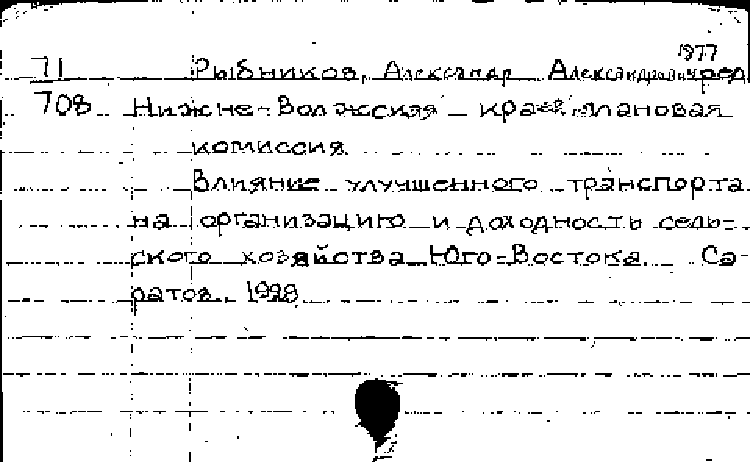 1877
71 Рыбников, Александр Александрович, ред.
708 Нижне-Волжская краев. плановая
комиссия.
Влияние улучшенного транспорта
на организацию и доходность сель-
ского хозяйства Юго-Востока. Са-
ратов. 1928